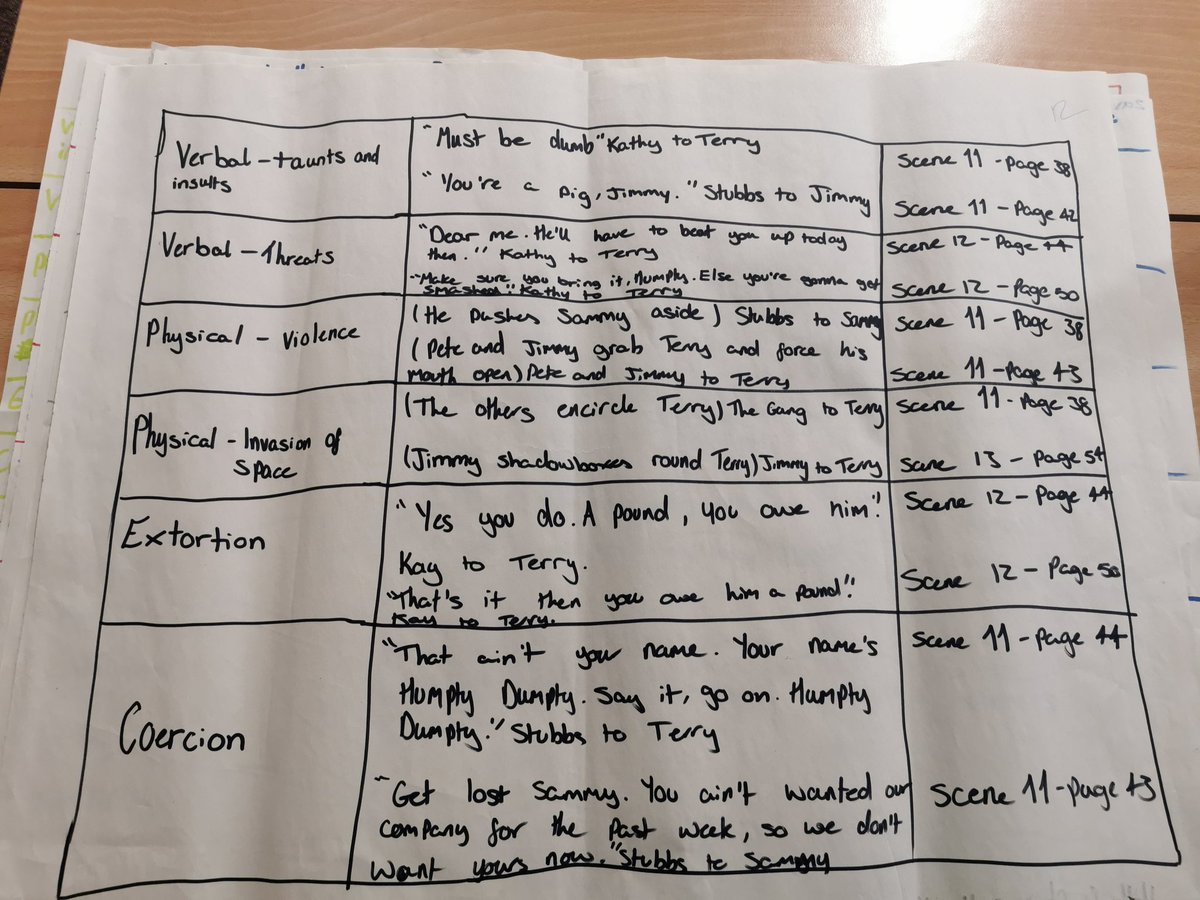 Verbal - taunts and
insults
"Must be dumb" Kathy to Terry
"You're a pig, Jimmy." Stubbs to Jimmy
Scene 11 - Page 38
Scene 11 - Page 42
Verbal - Threats
"Dear me. He'll have to beat you up today
then." Kathy to Terry
"Make sure you bring it, Humpty. Else you're gonna get
smashed." Kathy to Terry
Scene 12 - Page 44
Scene 12 - Page 50
Physical - Violence
(He pushes Sammy aside) Stubbs to Sammy
(Pete and Jimmy grab Terry and force his
mouth open) Pete and Jimmy to Terry
Scene 11 - Page 38
Scene 11 - Page 43
Physical - Invasion of
Space
(The others encircle Terry) The Gang to Terry
(Jimmy shadowboxes round Terry) Jimmy to Terry
Scene 11 - Page 38
Scene 13 - Page 54
Extortion
"Yes you do. A pound, you owe him"!
Kay to Terry.
"That's it then you owe him a pound!"
Kay to Terry.
Scene 12 - Page 44
Scene 12 - Page 50
Coercion
"That ain't you name. Your name's
Humpty Dumpty. Say it, go on. Humpty
Dumpty." Stubbs to Terry
"Get lost Sammy. You ain't wanted our
company for the past week, so we don't
want yours now." Stubbs to Sammy
Scene 11 - Page 44
Scene 11 - Page 43